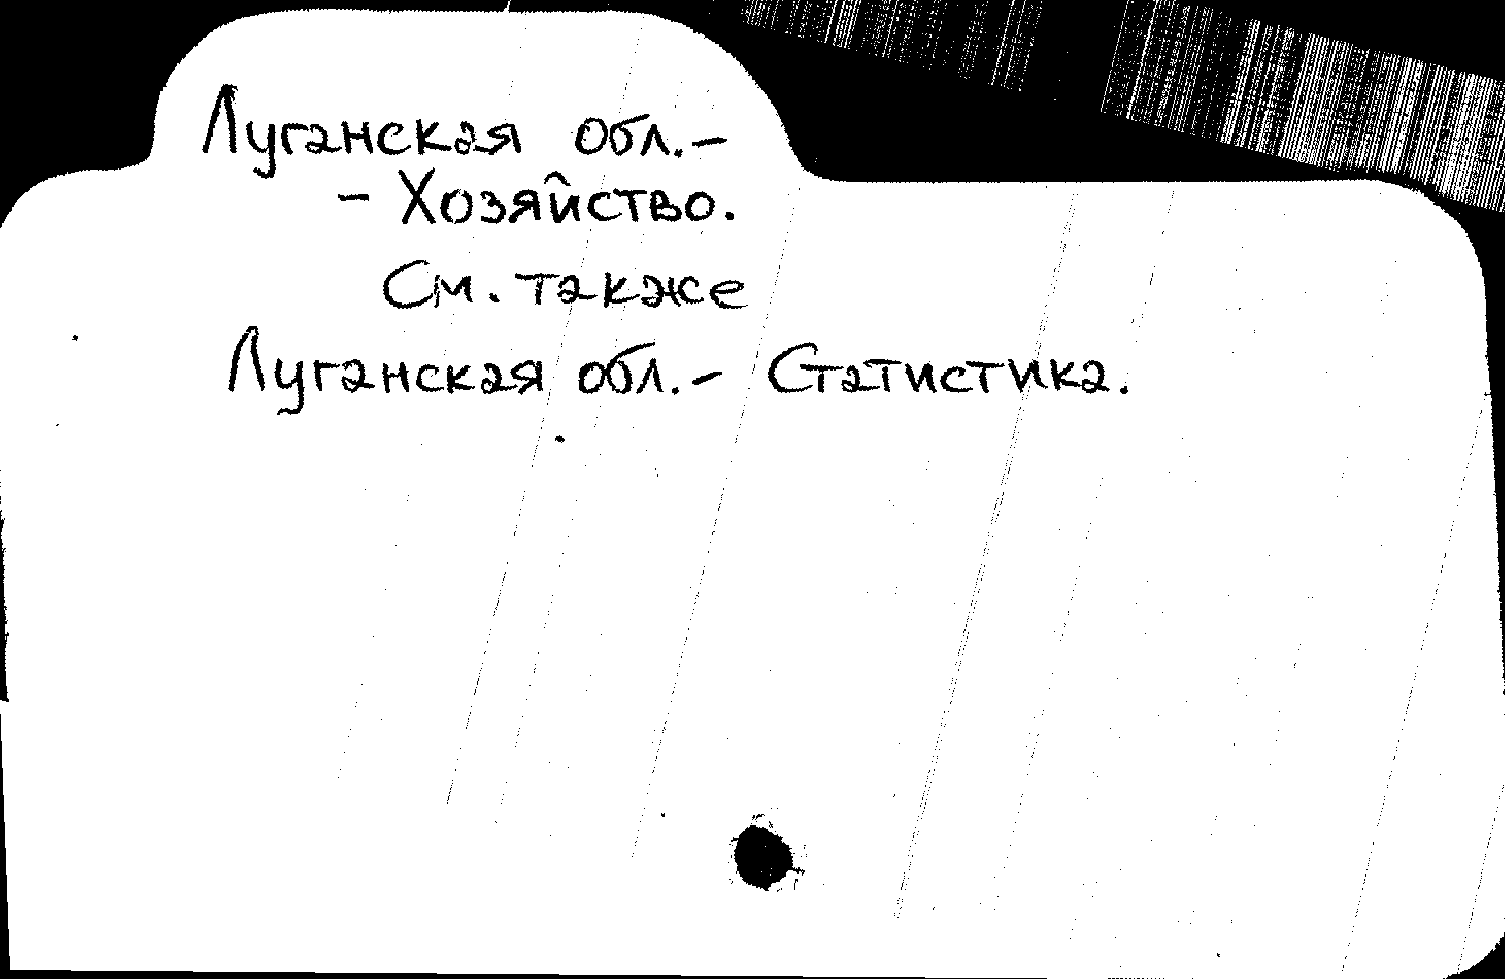 Луганская обл.-
- Хозяйство.
См. также
Луганская обл.- Статистика.